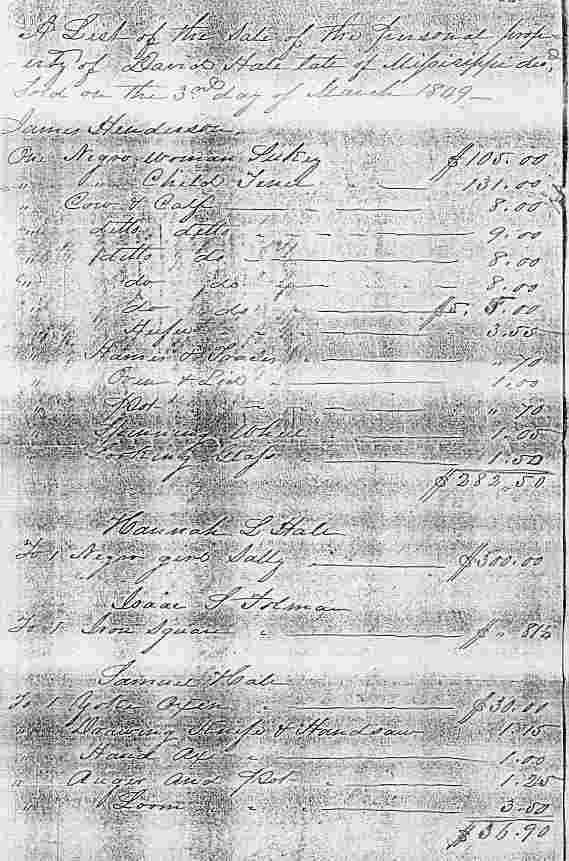 A List of the Sale of the personal prop-
erty of David Hale late of Missisippi decd,
Sold on the 3rd day of March 1849
James Henderson
One Negro woman $105.00
" " Child 131.00
" Cow & Calf 8.00
" ditto ditto 9.00
" ditto do 8.00
" do do 8.00
" do do $5. 5.00
" Heifer 3.55
" Hames & Traces " 70
" Oven & Lid 1.00
" Pot " 70
" Spinning Wheel 1.05
" Looking Glass 1.50
$282.50
Hannah L Hale
To 1 Negro girl Sally $500.00
Isaac Tolman
To 1 Iron Square $ " 81¼
Samuel Hale
To 1 Yoke Oxen $30.00
" Drawing Knife & Handsaw 1.15
" Hand Ax 1.00
" Auger and Pot 1.25
" Loom 3.50
$36.90